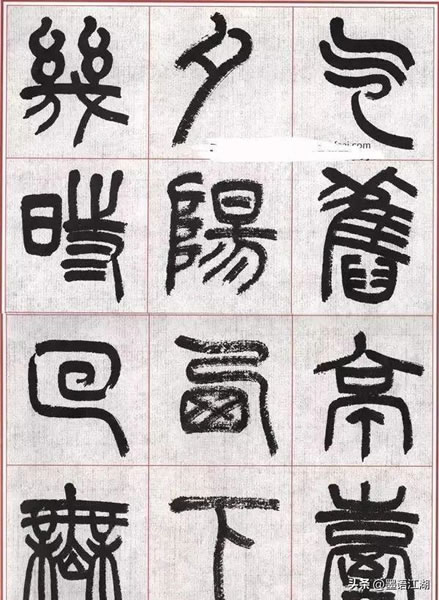 气舊亭臺
夕陽西下
幾時回無
头条 @墨语江湖